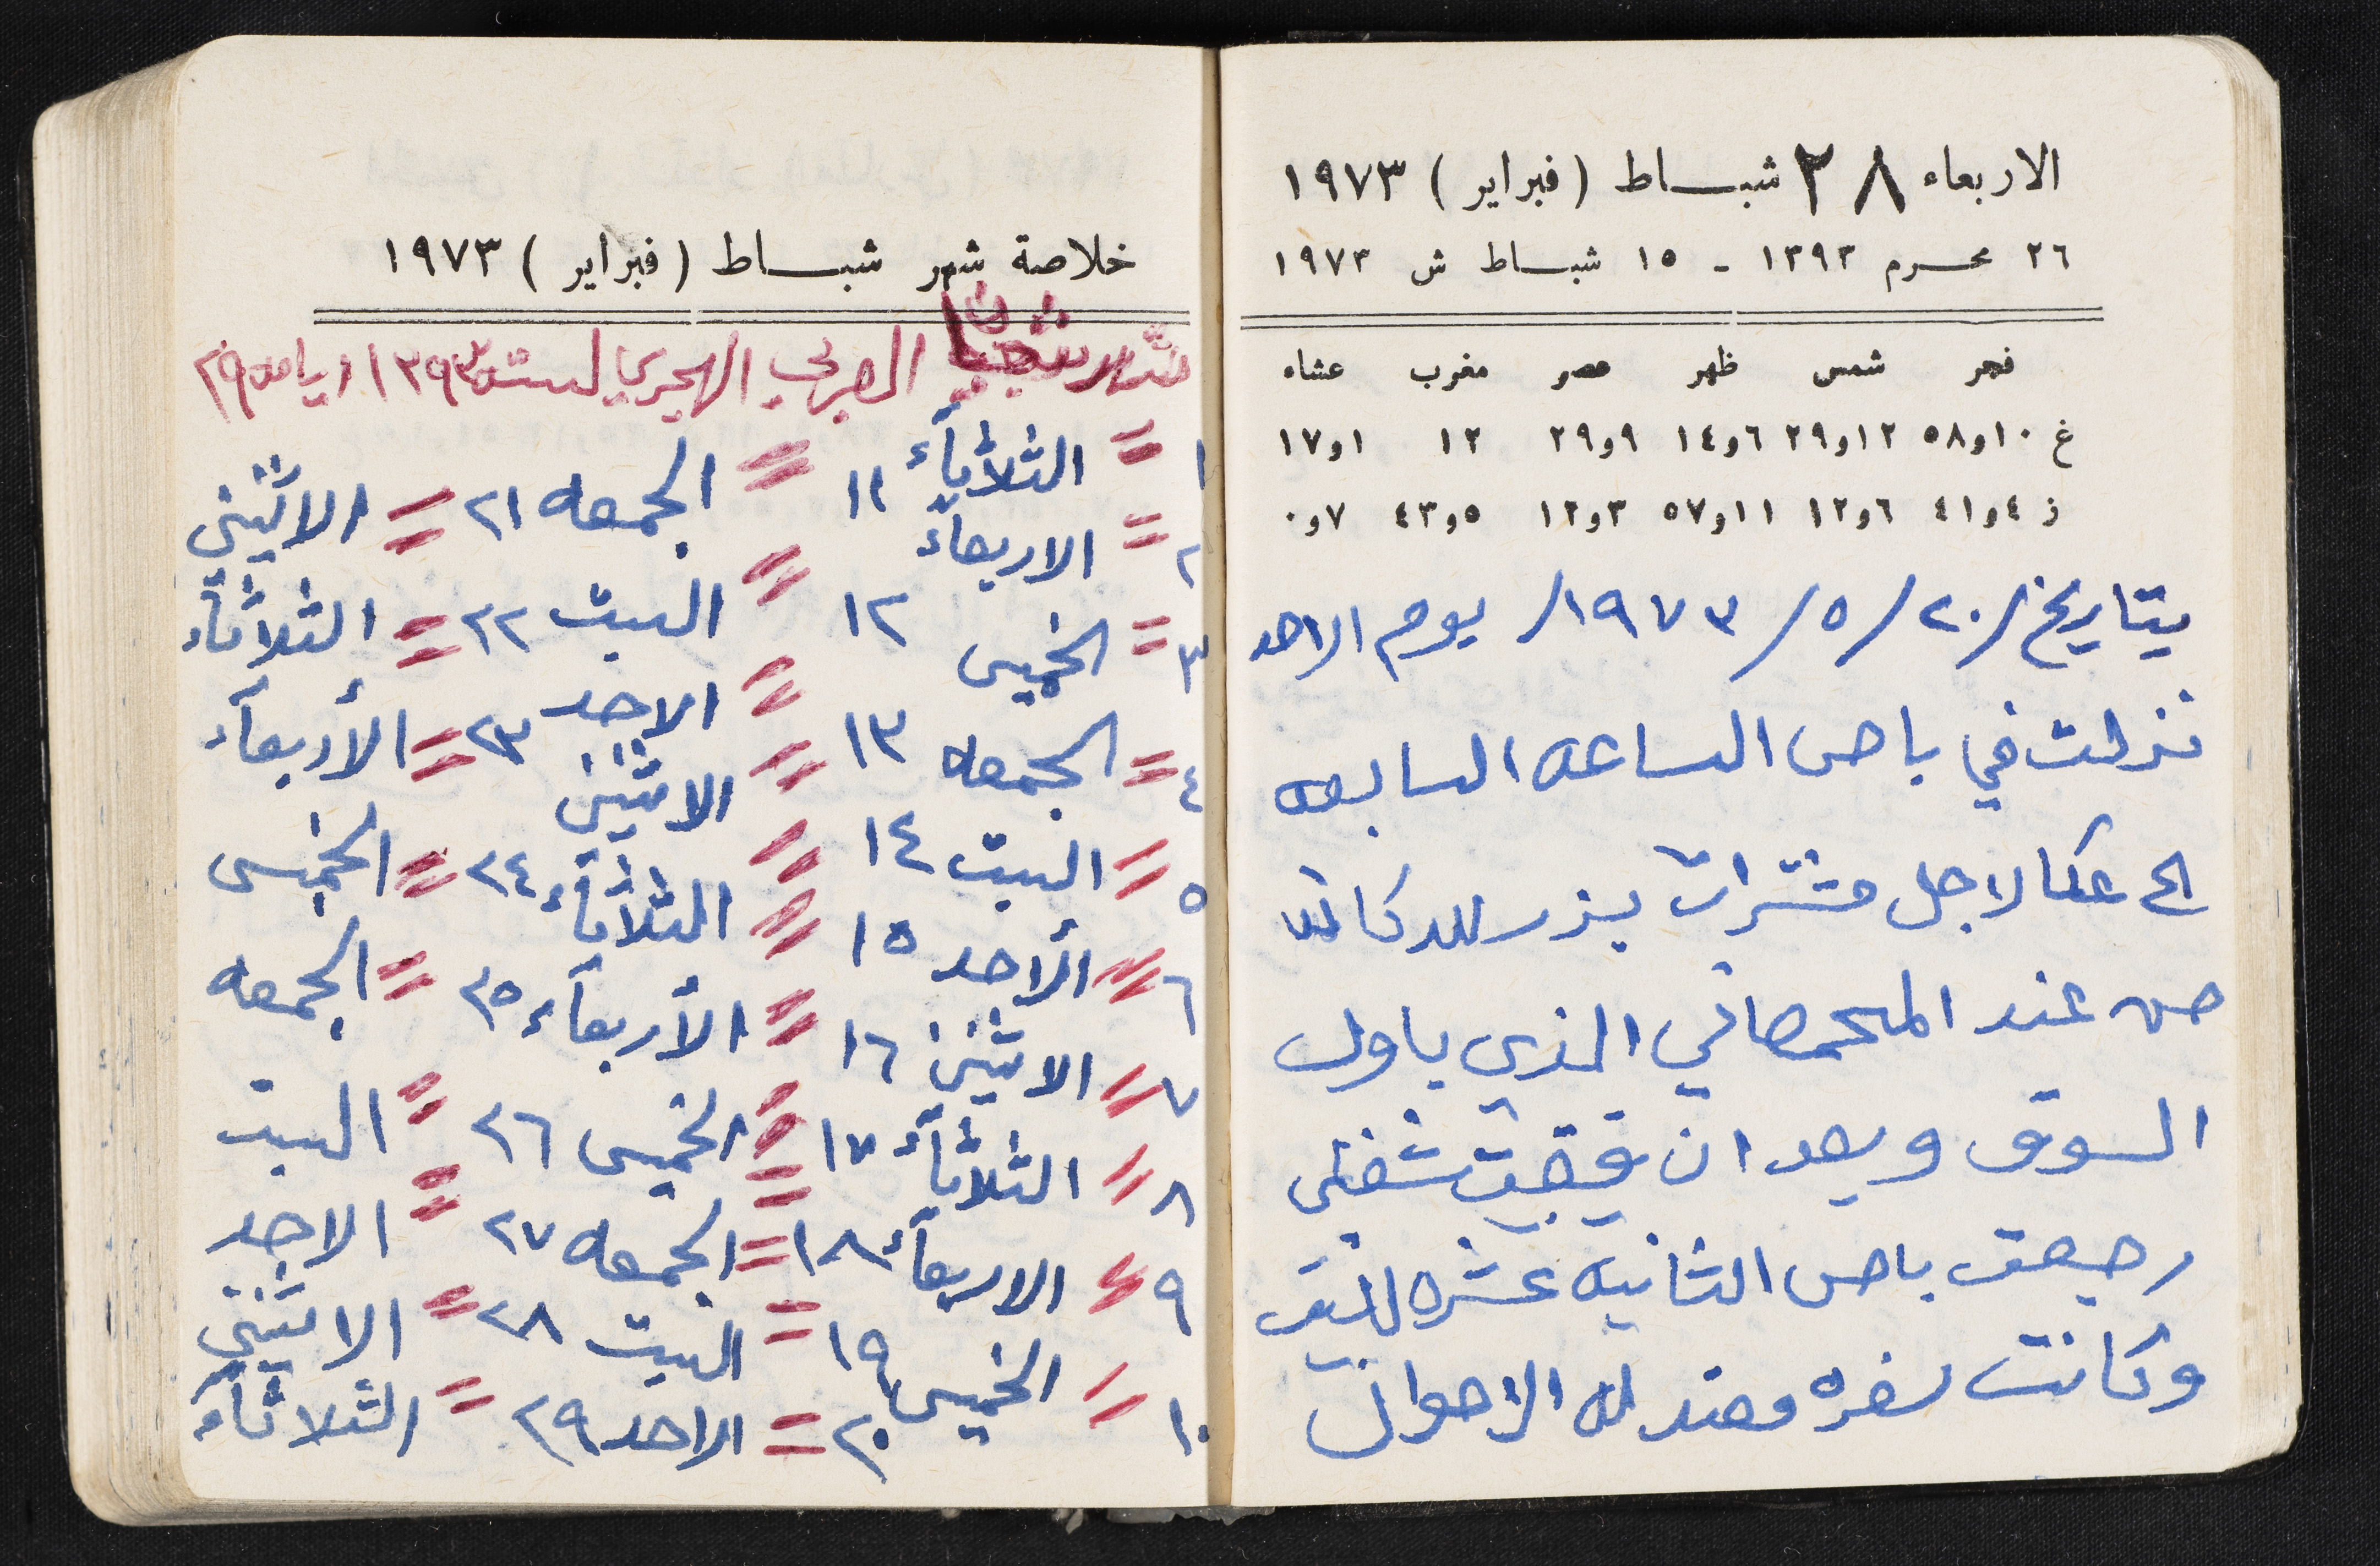 الاربعاء ٢٨ شباط (فبراير) ١٩٧٣
٢٦ محرم ١٣٩٣ - ١٥ شباط ش ١٩٧٣
فجر شمس ظهر عصر مغرب عشاء
غ ١٠و٥٨ ١٢و٢٩ ٦و١٤ ٩و٢٩ ١٢ ١و١٧
ز ٤و٤١ ٦و١٢ ١١و٥٧ ٣و١٢ ٥و٤٣ ٧و٠
بتاريخ /٢٠/٥/١٩٧٣/ يوم الاحد
نزلت في باص الساعه السابعه
الى عكا لاجل مشترات بزر للدكانه
من عند المحمصاني الذي باول
السوق وبعد ان قضيت شغلي
رجعت باص الثانيه عشره للبيت
وكانت سفره معتدله الاحوال
خلاصة شهر شباط (فبراير) ١٩٧٣
شهر شعبان العربي الهجري لسنة ١٣٩٣ ايامه ٢٩
١ = الثلاثآء ١١ = الجمعه ٢١ = الاثنين
٢ = الاربعآء ١٢ = السبت ٢٢ = الثلاثآء
٣ = الخميس ١٣ = الاحد ٢٣ = الأربعآء
٤ = الجمعه = الاثنين
٥ = السبت ١٤ = الثلاثآء ٢٤ = الخميس
٦ = الأحد ١٥ = الأربعآء ٢٥ = الجمعه
٧ = الاثنين ١٦ = الخميس ٢٦ = السبت
٨ = الثلاثآء ١٧ = الجمعه ٢٧ = الاحد
٩ = الاربعآء ١٨ = السبت ٢٨ = الاثنين
١٠ = الخميس ١٩ = الاحد ٢٩ = الثلاثآء
٢٠